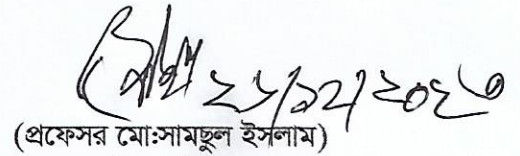 ২১/১২/২০২৩
(প্রফেসর মো:সামছুল ইসলাম)